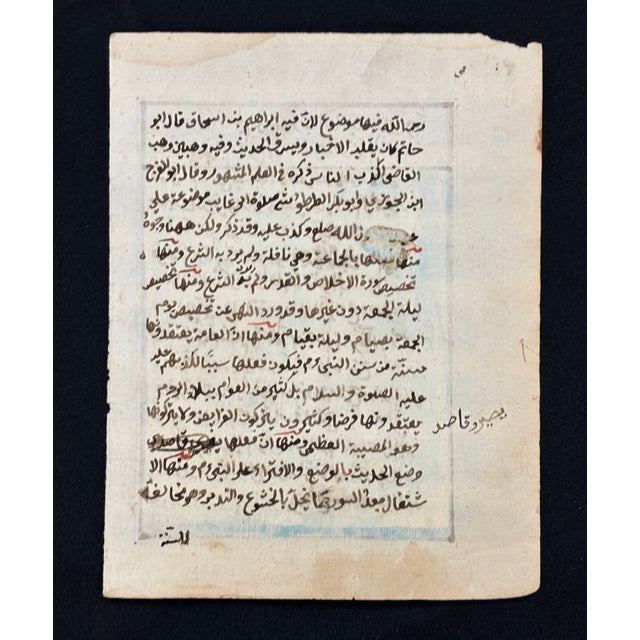 رحمه الله فيها موضوع لان فيه ابراهيم بن اسحاق قال ابو
حاتم كان يقلب الاخبار ويسرق الحديث وفيه وهب بن وهب
القاضي اكذب الناس ذكره في العلم المشهور وقال ابو الفرج
ابن الجوزي وابو بكر الطرطوشي صلاة الرغائب موضوعة على
رسول الله صلع وكذب عليه وقد ذكر ولكن ههنا وجوه
منها فعلها بالجماعة وهي نافلة ولم يرد به الشرع ومنها
تخصيص سورة الاخلاص والقدر ولم يرد الشرع ومنها تخصيص
ليلة الجمعة دون غيرها وقد ورد النهي عن تخصيص يوم
الجمعة بصيام وليلة بقيام ومنها ان العامة يعتقدونها
سنة من سنن النبي عم فيكون فعلها سببا لكذبهم عليه
عليه الصلوة والسلام بل كثير من العوام ببلاد الروم
يعتقدونها فرضا وكثيرون يتركون الفرايض ولا يتركونها
وهو المصيبة العظمى ومنها ان فعلها
وضع الحديث بالوضع والافتراء على النبي عم ومنها الا
شتغال بعد السور مما يخل بالخشوع والتدبر وهو مخالفة
للسنة